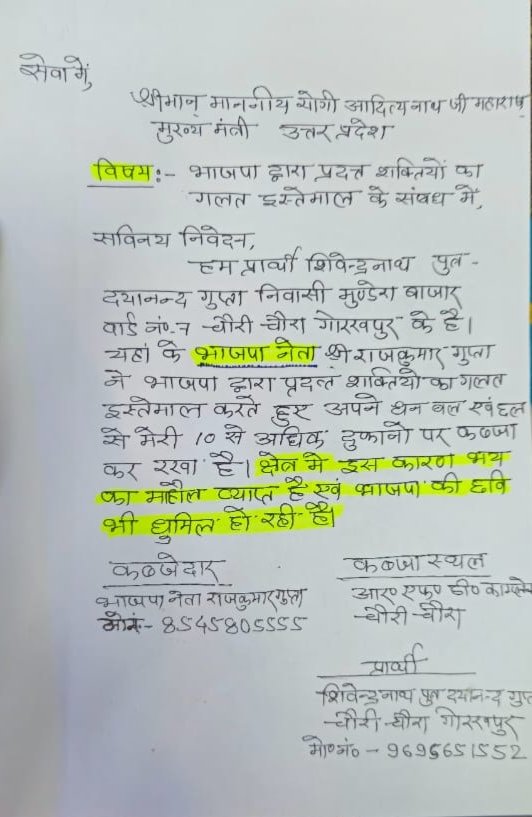 सेवा में,
श्रीमान् माननीय योगी आदित्यनाथ जी महाराज
मुख्य मंत्री उत्तर प्रदेश
विषय:- भाजपा द्वारा प्रदत्त शक्तियों का
गलत इस्तेमाल के संबध में,
सविनय निवेदन,
हम प्रार्थी शिवेन्द्रनाथ पुत्र-
दयानन्द गुप्ता निवासी मुण्डेरा बाजार
वार्ड नं०-7 चौरी-चौरा गोरखपुर के है।
यहां के भाजपा नेता श्री राजकुमार गुप्ता
ने भाजपा द्वारा प्रदत्त शक्तियो का गलत
इस्तेमाल करते हुए अपने धन बल एवं छल
से मेरी 10 से अधिक दुकानो पर कब्जा
कर रखा है। क्षेत्र मे इस कारण भय
का माहौल व्याप्त है एवं भाजपा की छवि
भी धुमिल हो रही है।
कब्जेदार
भाजपा नेता राजकुमार गुप्ता
मो०नं०- 8545805555
कब्जा स्थल
आर० एफ० डी० काम्प्लेक्स
चौरी-चौरा
प्रार्थी
शिवेन्द्रनाथ पुत्र दयानन्द गुप्ता
चौरी-चौरा गोरखपुर
मो०नं० - 9695651552